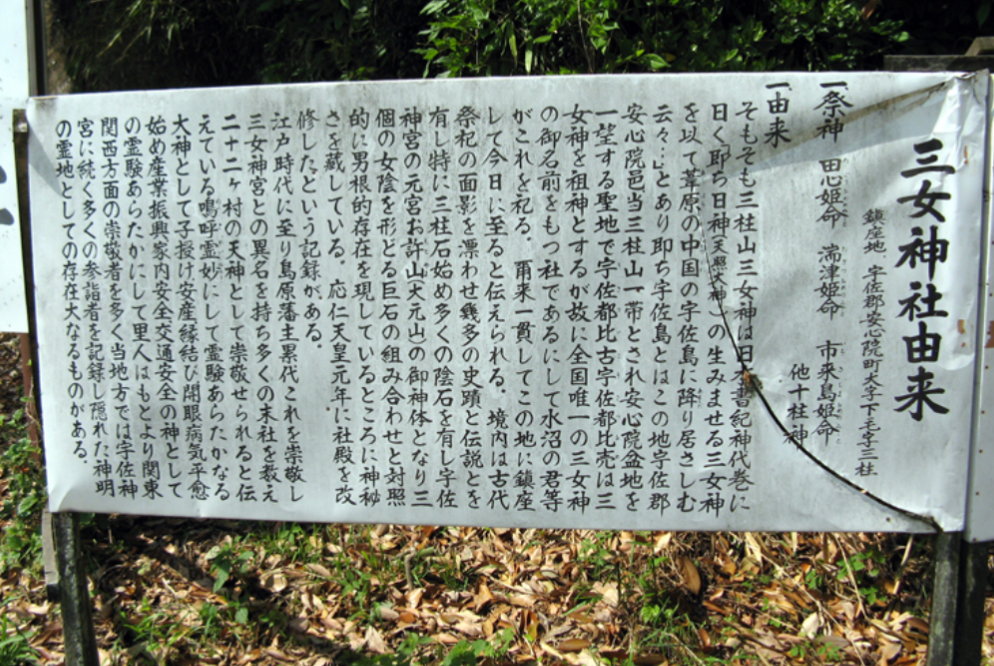 三女神社由来
鎮座地 宇佐郡安心院町大字下毛字三柱
一祭神 田心姫命 湍津姫命 市来島姫命
他十柱神
一由来
そもそも三柱山三女神は日本書紀神代巻に
曰く即ち日神(天照大神)の生みませる三女神
を以て葦原の中国の宇佐島に降り居さしむ
云々…」とあり即ち宇佐島とはこの地宇佐郡
安心院邑当三柱山一帯とされ安心院盆地を
一望する聖地で宇佐都比古宇佐都比売は三
女神を祖神とするが故に全国唯一の三女神
の御名前をもつ社であるにして水沼の君等
がこれを祀る。爾来一貫してこの地に鎮座
して今日に至ると伝えられる。境内は古代
祭祀の面影を漂わせ幾多の史蹟と伝説とを
有し特に三柱石始め多くの陰石を有し宇佐
神宮の元宮お許山(大元山)の御神体となり三
個の女陰を形どる巨石の組み合わせと対照
的に男根的存在を現しているところに神秘
さを蔵している。応仁天皇元年に社殿を改
修したという記録がある。
江戸時代に至り島原藩主累代これを崇敬し
三女神宮との異名を持ち多くの末社を教え
二十二ヶ村の天神として崇敬せられると伝
えている嗚呼霊妙にして霊験あらたかなる
大神として子授け安産縁結び開眼病気平愈
始め産業振興家内安全交通安全の神として
の霊験あらたかにして里人はもとより関東
関西方面の崇敬者を多く当地方では宇佐神
宮に続く多くの参詣者を記録し隠れた神明
の霊地としての存在大なるものがある。